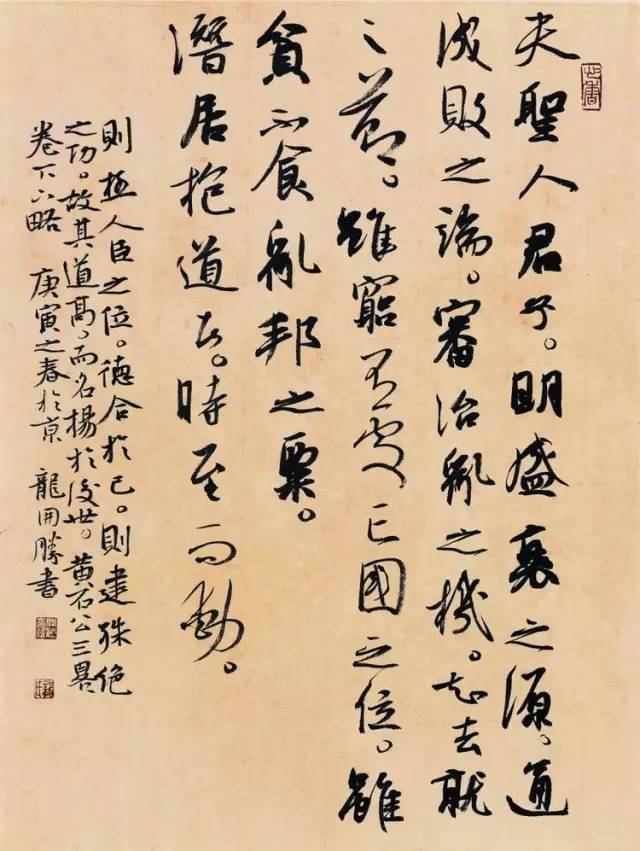 夫聖人君子。明盛衰之源。通
成敗之論。審治亂之機。知去就
之節。雖窮不處亡國之位。雖
貧不食亂邦之粟。
潛居抱道者。時至而動。
則極人臣之位。德合於己。則建殊絕
之功。故其道高。而名揚於後世。黄石公三畧
卷下下略 庚寅之春於京 龍開勝書